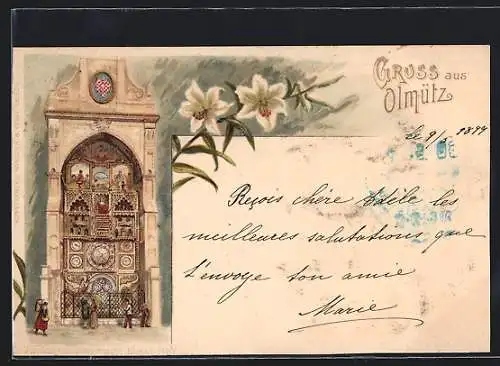 Gruss aus
Olmütz
le 9/
Reçois chère Adèle les
meilleures salutations que
t'envoye ton amie
Marie